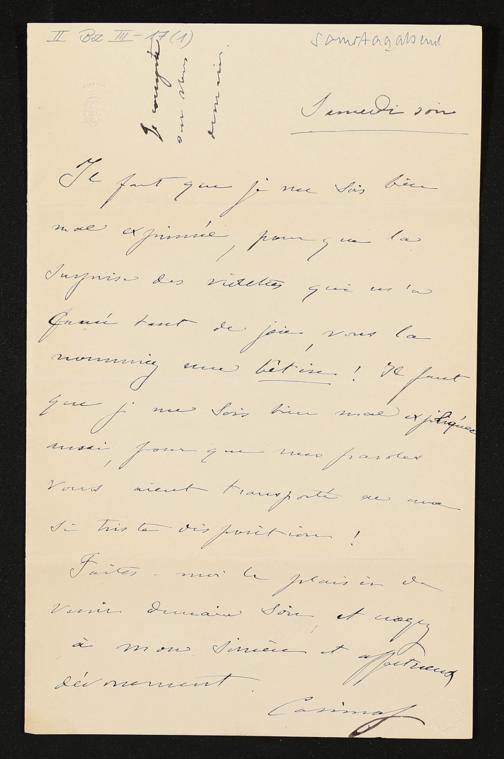 II Bz III-17(1)
samstagabend
Je compte
sur vous
demain.
Samedi soir
Il faut que je me sois bien
mal exprimée, pour que la
surprise des violettes qui m'a
causé tant de joie, vous la
nommiez une bêtise ! Il faut
que je me sois bien mal expliquée
aussi, pour que mes paroles
vous aient transporté de
si triste disposition !
Faites-moi le plaisir de
venir demain soir, et croyez
à mon sincère et affectueux
dévouement.